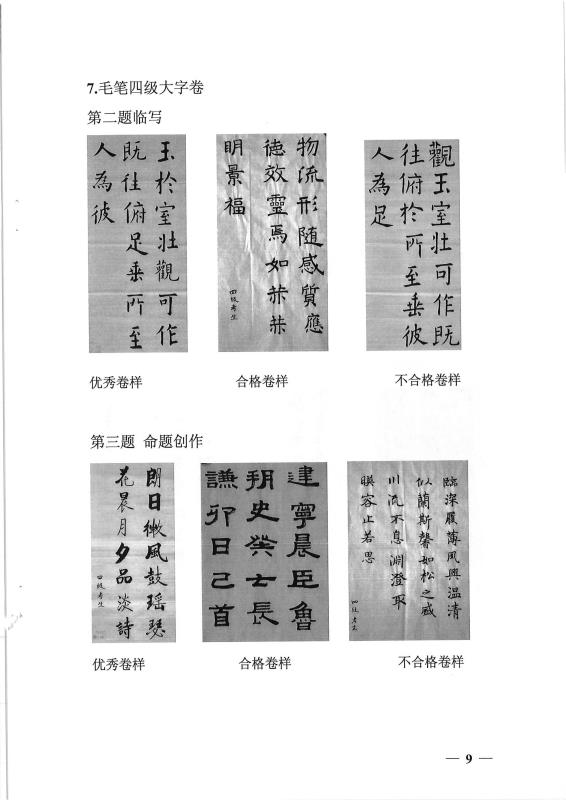 7.毛笔四级大字卷
第二题临写
玉於室壯觀可作
既往俯足垂所至
人為彼
物流形随感質應
徳效靈焉如
明景福
四级考生
觀玉室壯可作既
往俯於所至垂彼
人為足
优秀卷样
合格卷样
不合格卷样
第三题 命题创作
朗日微風鼓瑶瑟
花晨月夕品淡詩
四级考生
建寧晨臣魯
朔史癸士長
謙卯日己首
臨深履薄夙興温清
似蘭斯馨如松之盛
川流不息淵澄取
暎容止若思
四级考生
优秀卷样
合格卷样
不合格卷样
— 9 —